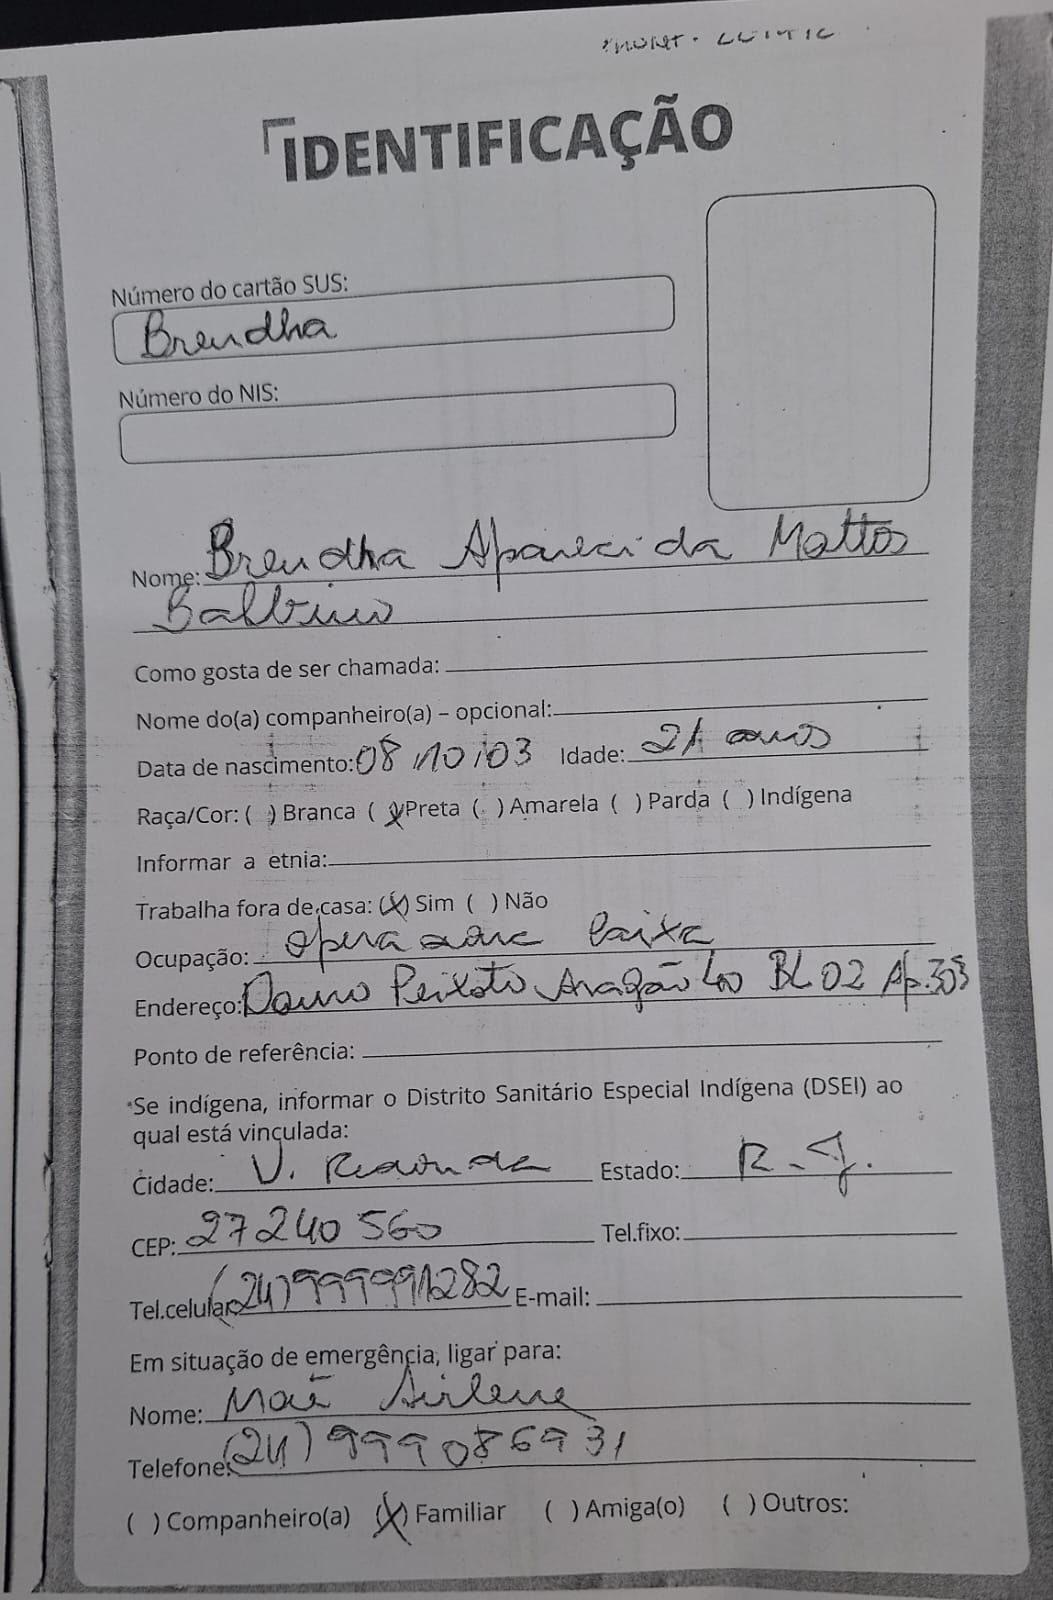 IDENTIFICAÇÃO
Número do cartão SUS:
Brendha
Número do NIS:
Nome: Brendha Aparecida Mattos
Balbino
Como gosta de ser chamada:
Nome do(a) companheiro(a) – opcional:
Data de nascimento: 08/10/03 Idade: 21 anos
Raça/Cor: ( ) Branca (X) Preta ( ) Amarela ( ) Parda ( ) Indígena
Informar a etnia:
Trabalha fora de casa: (X) Sim ( ) Não
Ocupação: caixa
Endereço: Peixoto Aragão BL 02 Ap. 303
Ponto de referência:
*Se indígena, informar o Distrito Sanitário Especial Indígena (DSEI) ao
qual está vinculada:
Cidade: V. Redonda Estado: R.J.
CEP: 27240 560 Tel.fixo:
Tel.celular: (24) 999991282 E-mail:
Em situação de emergência, ligar para:
Nome: Mãe Airlene
Telefone: (24) 999086931
( ) Companheiro(a) (X) Familiar ( ) Amiga(o) ( ) Outros: